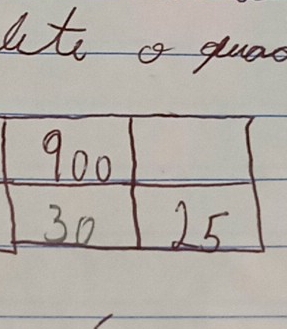 lete o quad
900
30 25